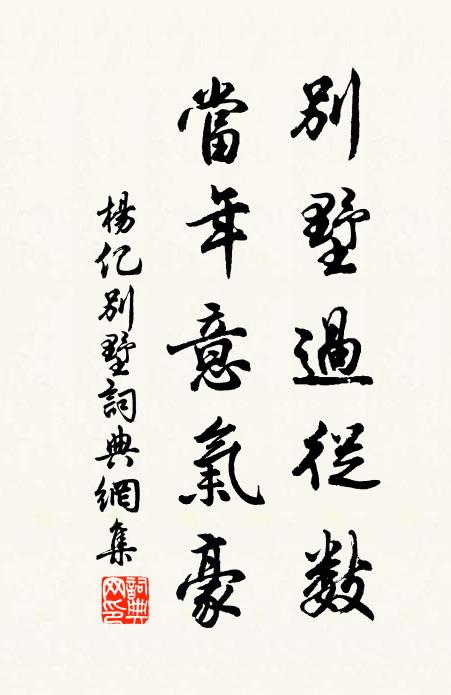 別墅過從數
當年意氣豪
楊億別墅詞典網集
詞典網印